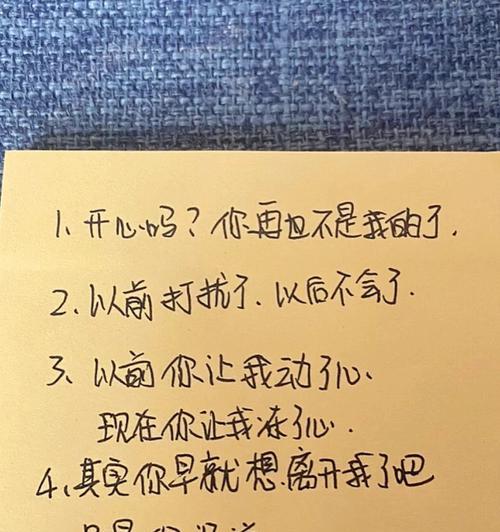 1、开心吗？你再也不是我的了.
2、以前打扰了、以后不会了.
3、以前你让我动了心、
现在你让我冻了心.
4、其实你早就想离开我了吧